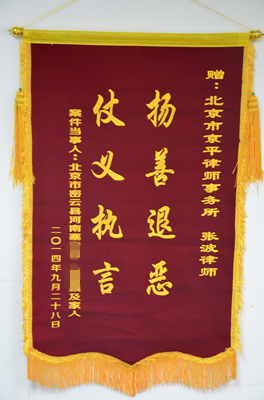 赠：北京市京平律师事务所 张波律师
扬善退恶
仗义执言
案件当事人：北京市密云县河南寨
及家人
二〇一四年九月二十八日